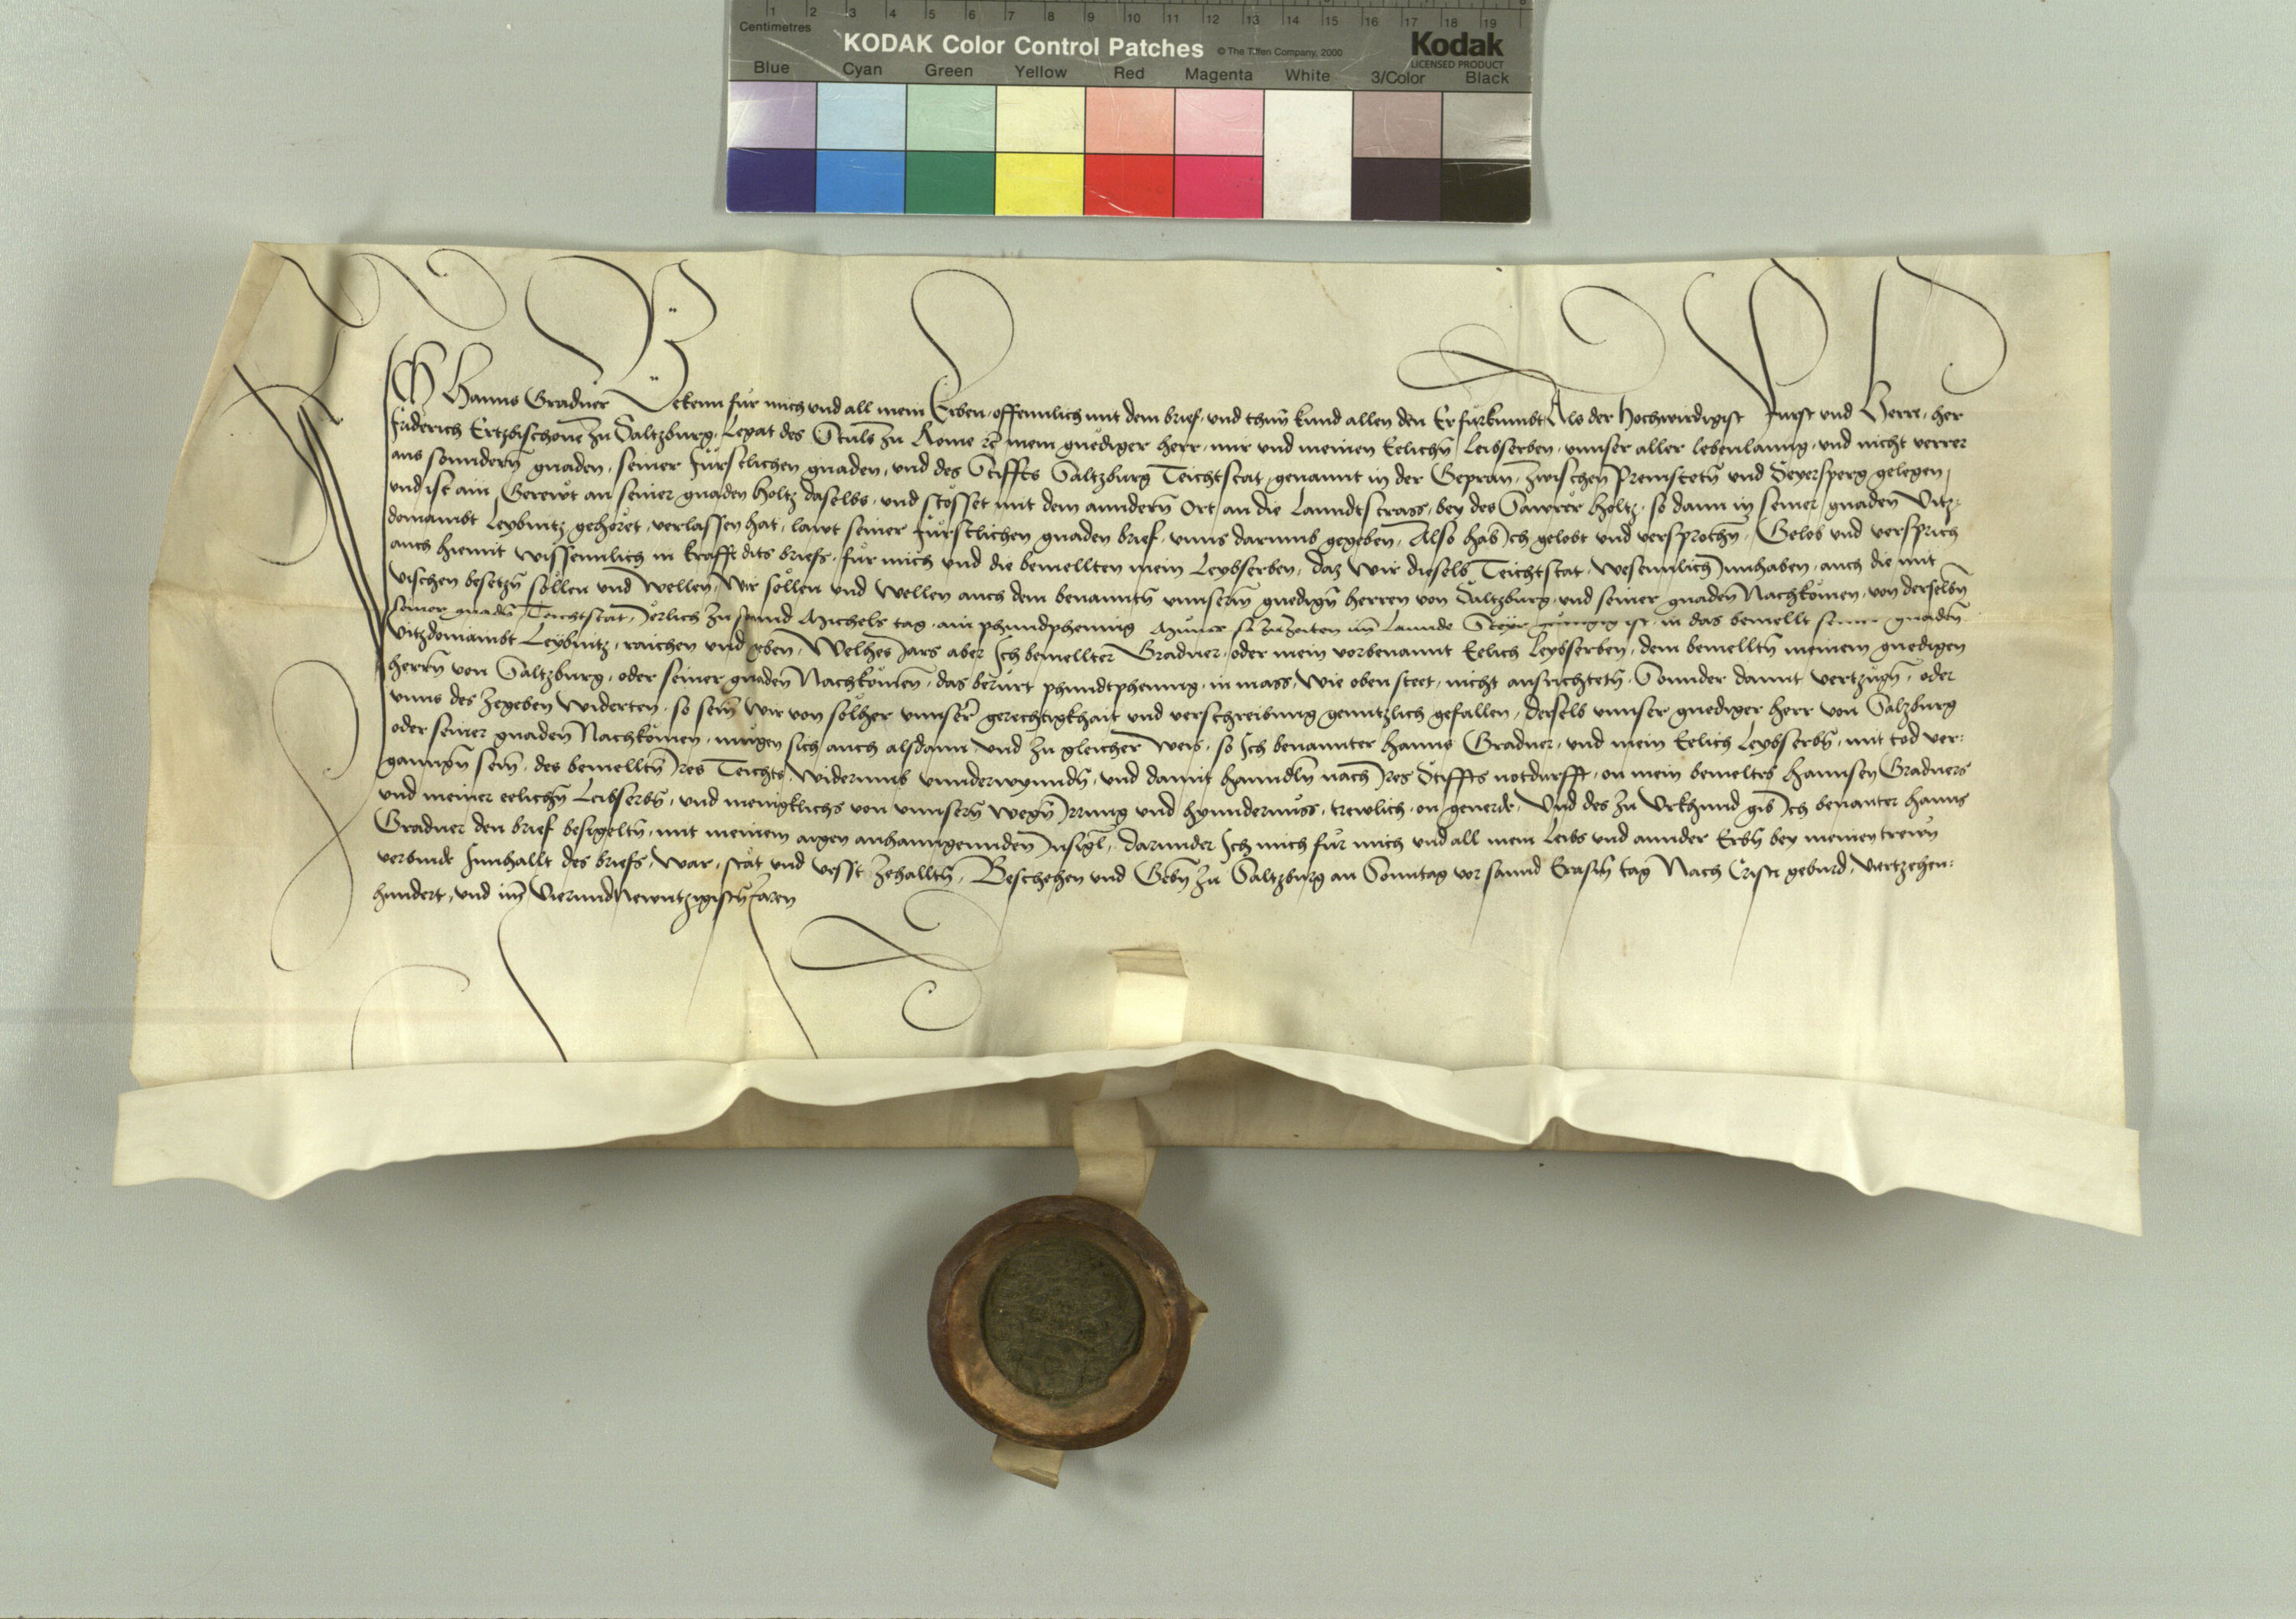 1 2 3 4 5 6 7 8 9 10 11 12 13 14 15 16 17 18 19
Centimetres
KODAK Color Control Patches © The Tiffen Company, 2000 Kodak
LICENSED PRODUCT
Blue Cyan Green Yellow Red Magenta White 3/Color Black
Ich Hanns Gradner Bekenn für mich und all mein Erben offennlich mit dem brief und thun kund allen den Er fürkumbt Als der Hochwirdigist Fürst und Herre her
Friderich Ertzbischove zu Saltzburg Legat des Stuls zu Rome rc mein gnediger herr mir und meinen Eelichn Leibserben unnser aller lebenlanng und nicht verrer
aus sonndern gnaden seiner fürstlichen gnaden und des Stiffts Saltzburg Teichtstat genannt in der Gepran zwischen Premstetn und Deyersperg gelegen
und ist ain Gerewt an seiner gnaden holtz daselbs und stösset mit dem anndern Ort an die Lanndtstrass bey des Sawrer holtz so dann in seiner gnaden Vitz
dombambt Leybnitz gehöret verlassen hat lawt seiner fürstlichen gnaden brief unns darumb gegeben Also hab Ich gelobt und versprochn Gelob und versprich
auch hiemit wissennlich in krafft dits briefs für mich und die bemellten mein Leybserben daz wir dieselb Teichtstat wesennlich innhaben auch die mit
vischen besetzn sollen und wellen Wir sollen und wellen auch dem benanntn unnserm gnedign herren von Saltzburg und seiner gnaden Nachkomen von derselbn
seiner gnadn Teichtstat Jerlich zu sannd Michels tag ain phundphening Münss so zuzeiten im Lannde Steyr ist in das bemellt seiner gnaden
Vitzdombambt Leybnitz raichen und geben Welhes Jars aber Ich bemellter Gradner oder mein vorbenannt Eelich Leybserben dem bemelltn meinem gnedigen
herrn von Saltzburg oder seiner gnaden Nachkomen das berürt phundtphening in mass wie oben steet nicht ausrichtetn Sonnder damit vertzugn oder
unns des zegeben widerten so sein wir von solher unnser gerechtigkhait und verschreibung genntzlich gefallen derselb unnser gnediger herr von Salzburg
oder seiner gnaden Nachkomen mugen sich auch alsdann und zu gleicher weis so Ich benannter Hanns Gradner und mein Eelich Leybserbn mit tod ver
ganngn sein des bemelltn Jres Teichts widerumb unnderwynndn und damit hanndln nach Jres Stiffts notdurfft on mein bemeltes Hannsen Gradners
und meiner eelichn Leibserbn und menigklichs von unnsern wegn Jrrung und hynndernuss trewlich on geverde Und des zu Urkhund gib Ich benanter Hanns
Gradner den brief besigeltn mit meinem aigen anhanngennden Insigl darunder Ich mich für mich und all mein Leibs und annder Erbn bey meinen trewn
verbinde Innhallt des briefs war stät und vesst zehalltn Beschehen und Gebn zu Saltzburg an Sonntag vor sannd Erasm tag Nach Cristi geburd viertzehen
hundert und im Vierundnewntzigistn Jaren